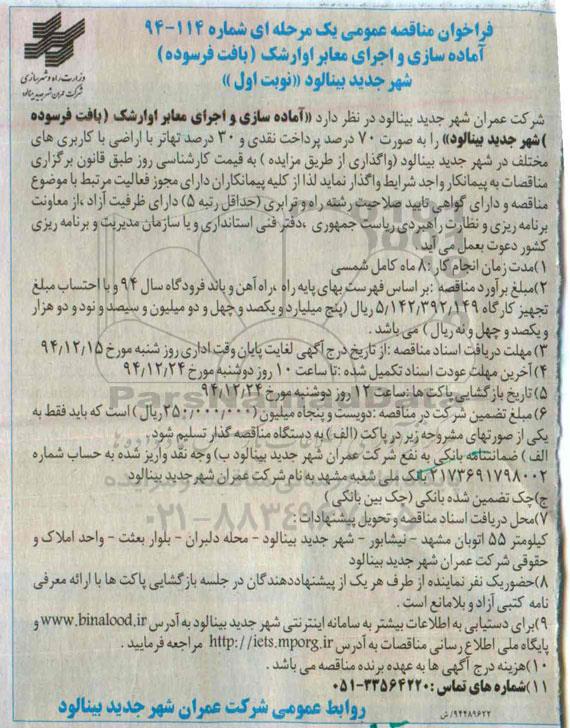 فراخوان مناقصه عمومی یک مرحله ای شماره ۱۱۴-۹۴
آماده سازی و اجرای معابر اوارشک (بافت فرسوده)
شهر جدید بینالود «نوبت اول»
وزارت راه و شهرسازی
شرکت عمران شهر جدید بینالود
شرکت عمران شهر جدید بینالود در نظر دارد «آماده سازی و اجرای معابر اوارشک (بافت فرسوده
)شهر جدید بینالود» را به صورت ۷۰ درصد پرداخت نقدی و ۳۰ درصد تهاتر با اراضی با کاربری های
مختلف در شهر جدید بینالود (واگذاری از طریق مزایده ) به قیمت کارشناسی روز طبق قانون برگزاری
مناقصات به پیمانکار واجد شرایط واگذار نماید لذا از کلیه پیمانکاران دارای مجوز فعالیت مرتبط با موضوع
مناقصه و دارای گواهی تایید صلاحیت رشته راه و ترابری (حداقل رتبه ۵) دارای ظرفیت آزاد ،از معاونت
برنامه ریزی و نظارت راهبردی ریاست جمهوری ،دفتر فنی استانداری و یا سازمان مدیریت و برنامه ریزی
کشور دعوت بعمل می آید.
۱)مدت زمان انجام کار :۸ ماه کامل شمسی
۲)مبلغ برآورد مناقصه :بر اساس فهرست بهای پایه راه ،راه آهن و باند فرودگاه سال ۹۴ و با احتساب مبلغ
تجهیز کارگاه ۵/۱۴۲/۳۹۲/۱۴۹ ریال (پنج میلیارد و یکصد و چهل و دو میلیون و سیصد و نود و دو هزار
و یکصد و چهل و نه ریال ) می باشد .
۳) مهلت دریافت اسناد مناقصه :از تاریخ درج آگهی لغایت پایان وقت اداری روز شنبه مورخ ۹۴/۱۲/۱۵
۴)آخرین مهلت عودت اسناد تکمیل شده :تا ساعت ۱۰ روز دوشنبه مورخ ۹۴/۱۲/۲۴
۵) تاریخ بازگشایی پاکت ها :ساعت ۱۲ روز دوشنبه مورخ ۹۴/۱۲/۲۴
۶)مبلغ تضمین شرکت در مناقصه :دویست و پنجاه میلیون (۲۵۰/۰۰۰/۰۰۰ ریال ) است که باید فقط به
یکی از صورتهای مشروحه زیر در پاکت (الف) به دستگاه مناقصه گذار تسلیم شود.
الف ) ضمانتنامه بانکی به نفع شرکت عمران شهر جدید بینالود ب) وجه نقد واریز شده به حساب شماره
۲۱۷۳۶۹۱۷۹۸۰۰۲ بانک ملی شعبه مشهد به نام شرکت عمران شهر جدید بینالود
ج)چک تضمین شده بانکی (چک بین بانکی )
۷)محل دریافت اسناد مناقصه و تحویل پیشنهادات :
کیلومتر ۵۵ اتوبان مشهد - نیشابور - شهر جدید بینالود - محله دلبران - بلوار بعثت - واحد املاک و
حقوقی شرکت عمران شهر جدید بینالود
۸)حضور یک نفر نماینده از طرف هر یک از پیشنهاددهندگان در جلسه بازگشایی پاکت ها با ارائه معرفی
نامه کتبی آزاد و بلامانع است .
۹)برای دستیابی به اطلاعات بیشتر به سامانه اینترنتی شهر جدید بینالود به آدرس www.binalood.ir و
پایگاه ملی اطلاع رسانی مناقصات به آدرس http://iets.mporg.ir مراجعه فرمایید .
۱۰)هزینه درج آگهی ها به عهده برنده مناقصه می باشد .
۱۱)شماره های تماس :۳۳۵۶۴۲۲۰-۰۵۱
۹۴۴۸۹۶۲۲/ ش
روابط عمومی شرکت عمران شهر جدید بینالود